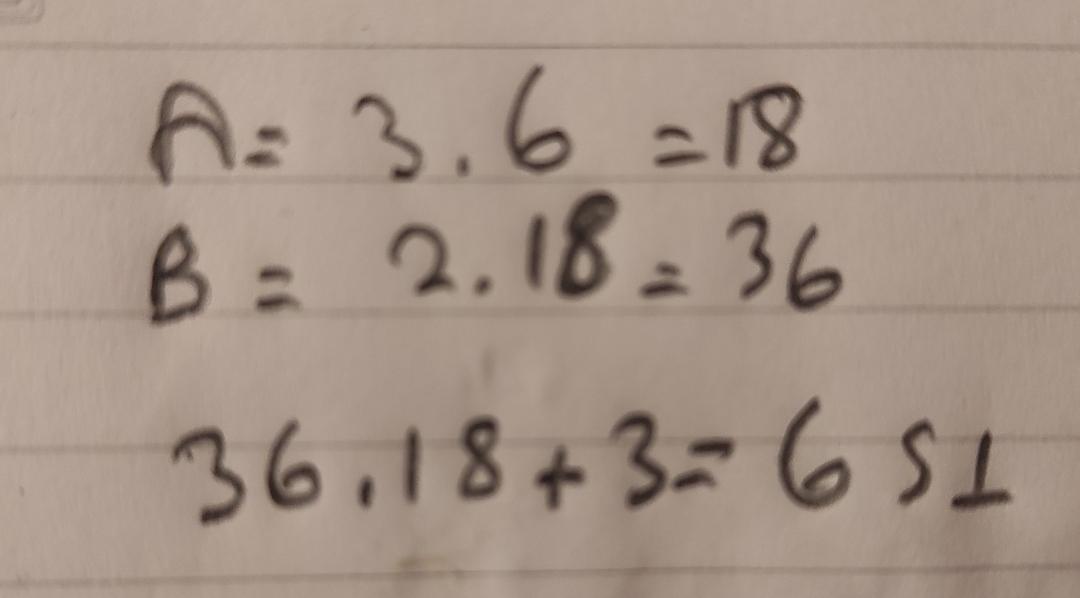 A= 3.6 =18
B = 2.18 = 36
36.18+3= 651